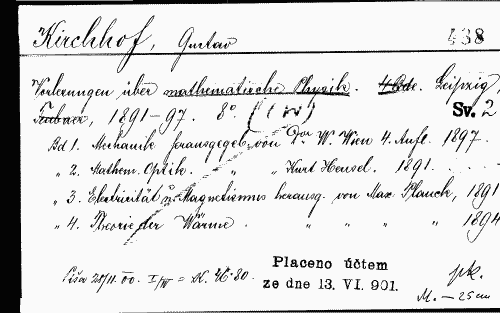 Kirchhof, Gustav 438
Vorlesungen über mathematische Physik. 4 Bde. Leipzig,
Teubner, 1891-97. 8° (IV) Sv. 2
Bd 1. Mechanik herausgegeb. von Dr W. Wien 4 Aufl. 1897.
" 2. Mathem. Optik. " " Kurt Hensel. 1891.
" 3. Electricität u. Magnetismus herausg. von Max Planck, 1891
" 4. Theorie der Wärme. " " " " 1894
Placeno účtem
ze dne 13. VI. 901.
pk.
M. - 25 cm